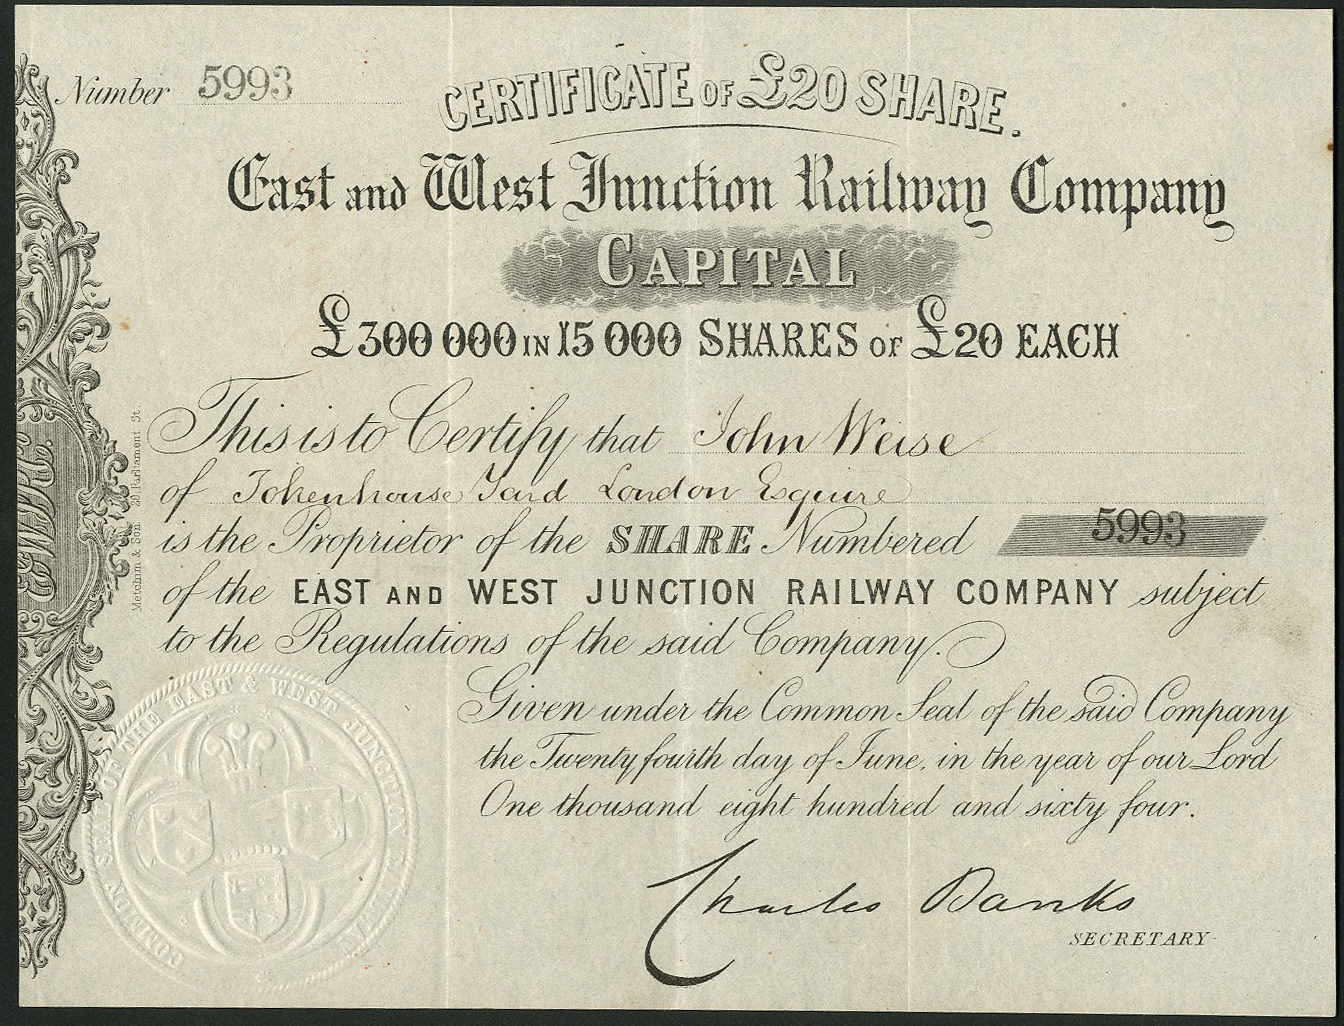 Number 5993
CERTIFICATE OF £20 SHARE.
East and West Junction Railway Company
CAPITAL
£300 000 IN 15 000 SHARES OF £20 EACH
This is to Certify that John Weise
of Tokenhouse Yard London Esquire
is the Proprietor of the SHARE Numbered 5993
of the EAST AND WEST JUNCTION RAILWAY COMPANY subject
to the Regulations of the said Company.
Given under the Common Seal of the said Company
the Twenty fourth day of June, in the year of our Lord
One thousand eight hundred and sixty four.
Charles Banks
SECRETARY
COMMON SEAL OF THE EAST & WEST JUNCTION RAILWAY
Metchim & Son 20 Parliament St.